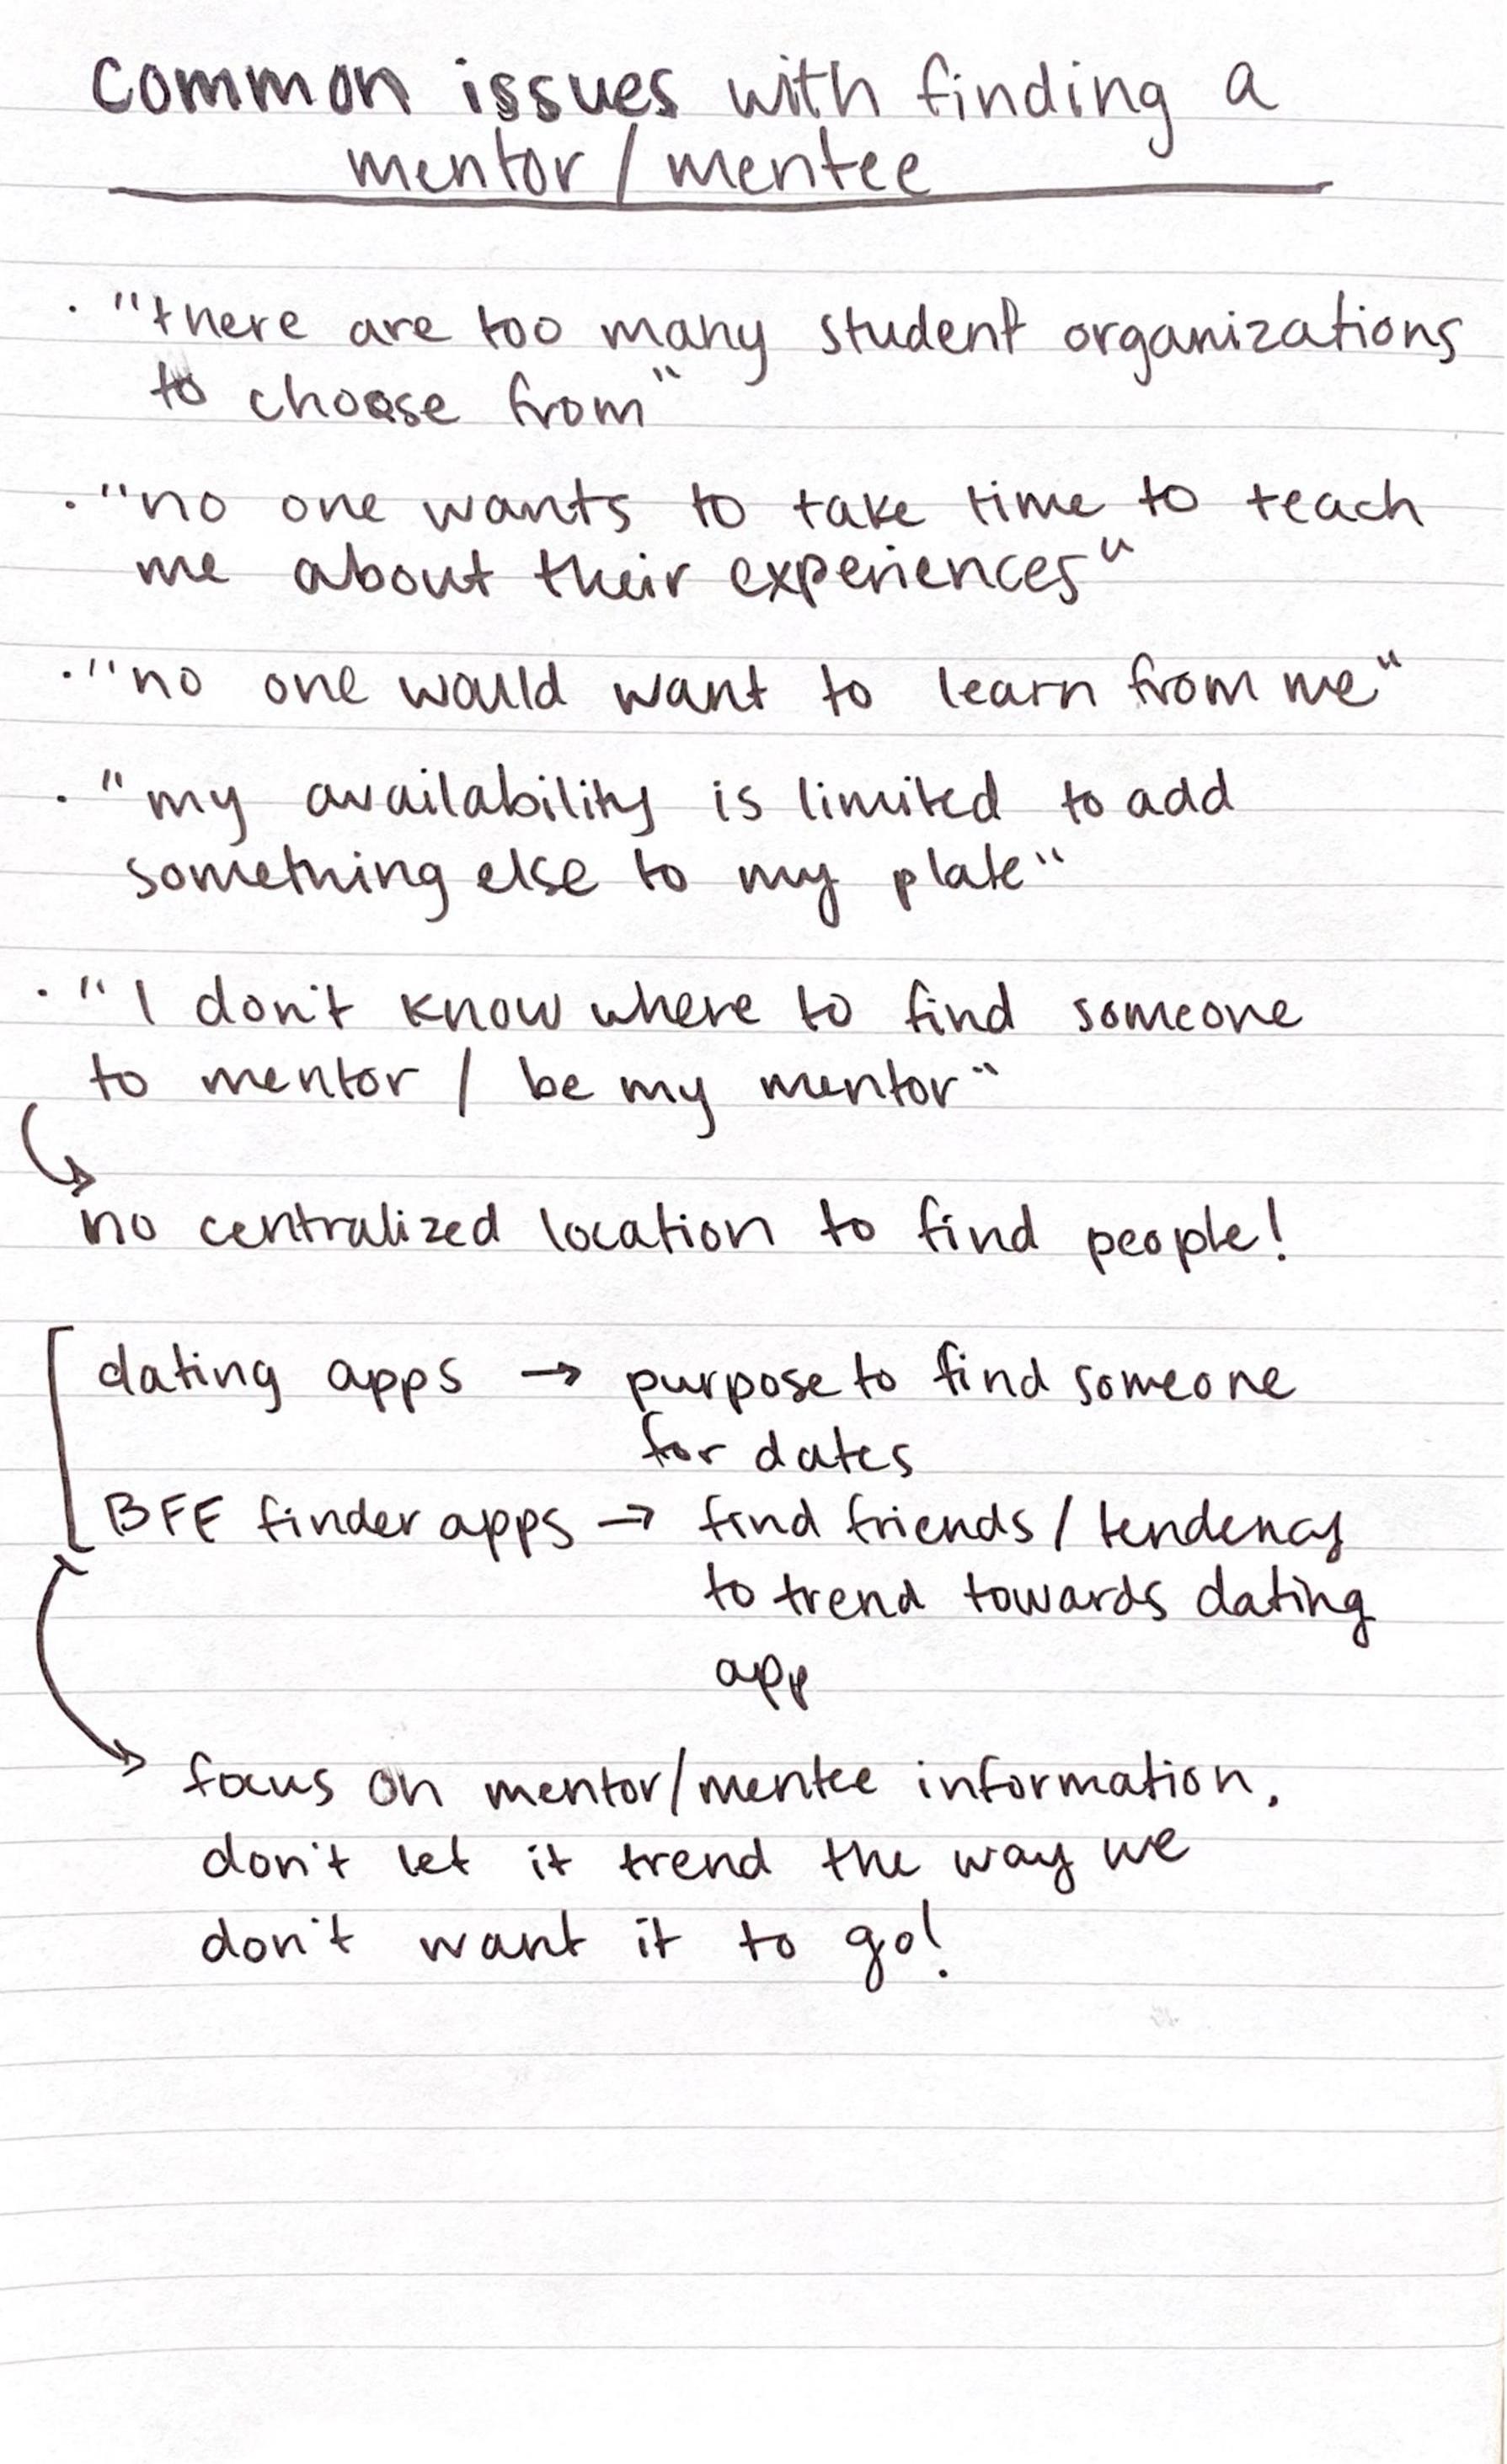 common issues with finding a
mentor / mentee
· "there are too many student organizations
to choose from"
· "no one wants to take time to teach
me about their experiences"
· "no one would want to learn from me"
· "my availability is limited to add
something else to my plate"
· "I don't know where to find someone
to mentor / be my mentor"
↳ no centralized location to find people!
dating apps → purpose to find someone
for dates
BFF finder apps → find friends / tendency
to trend towards dating
app
focus on mentor/mentee information,
don't let it trend the way we
don't want it to go!